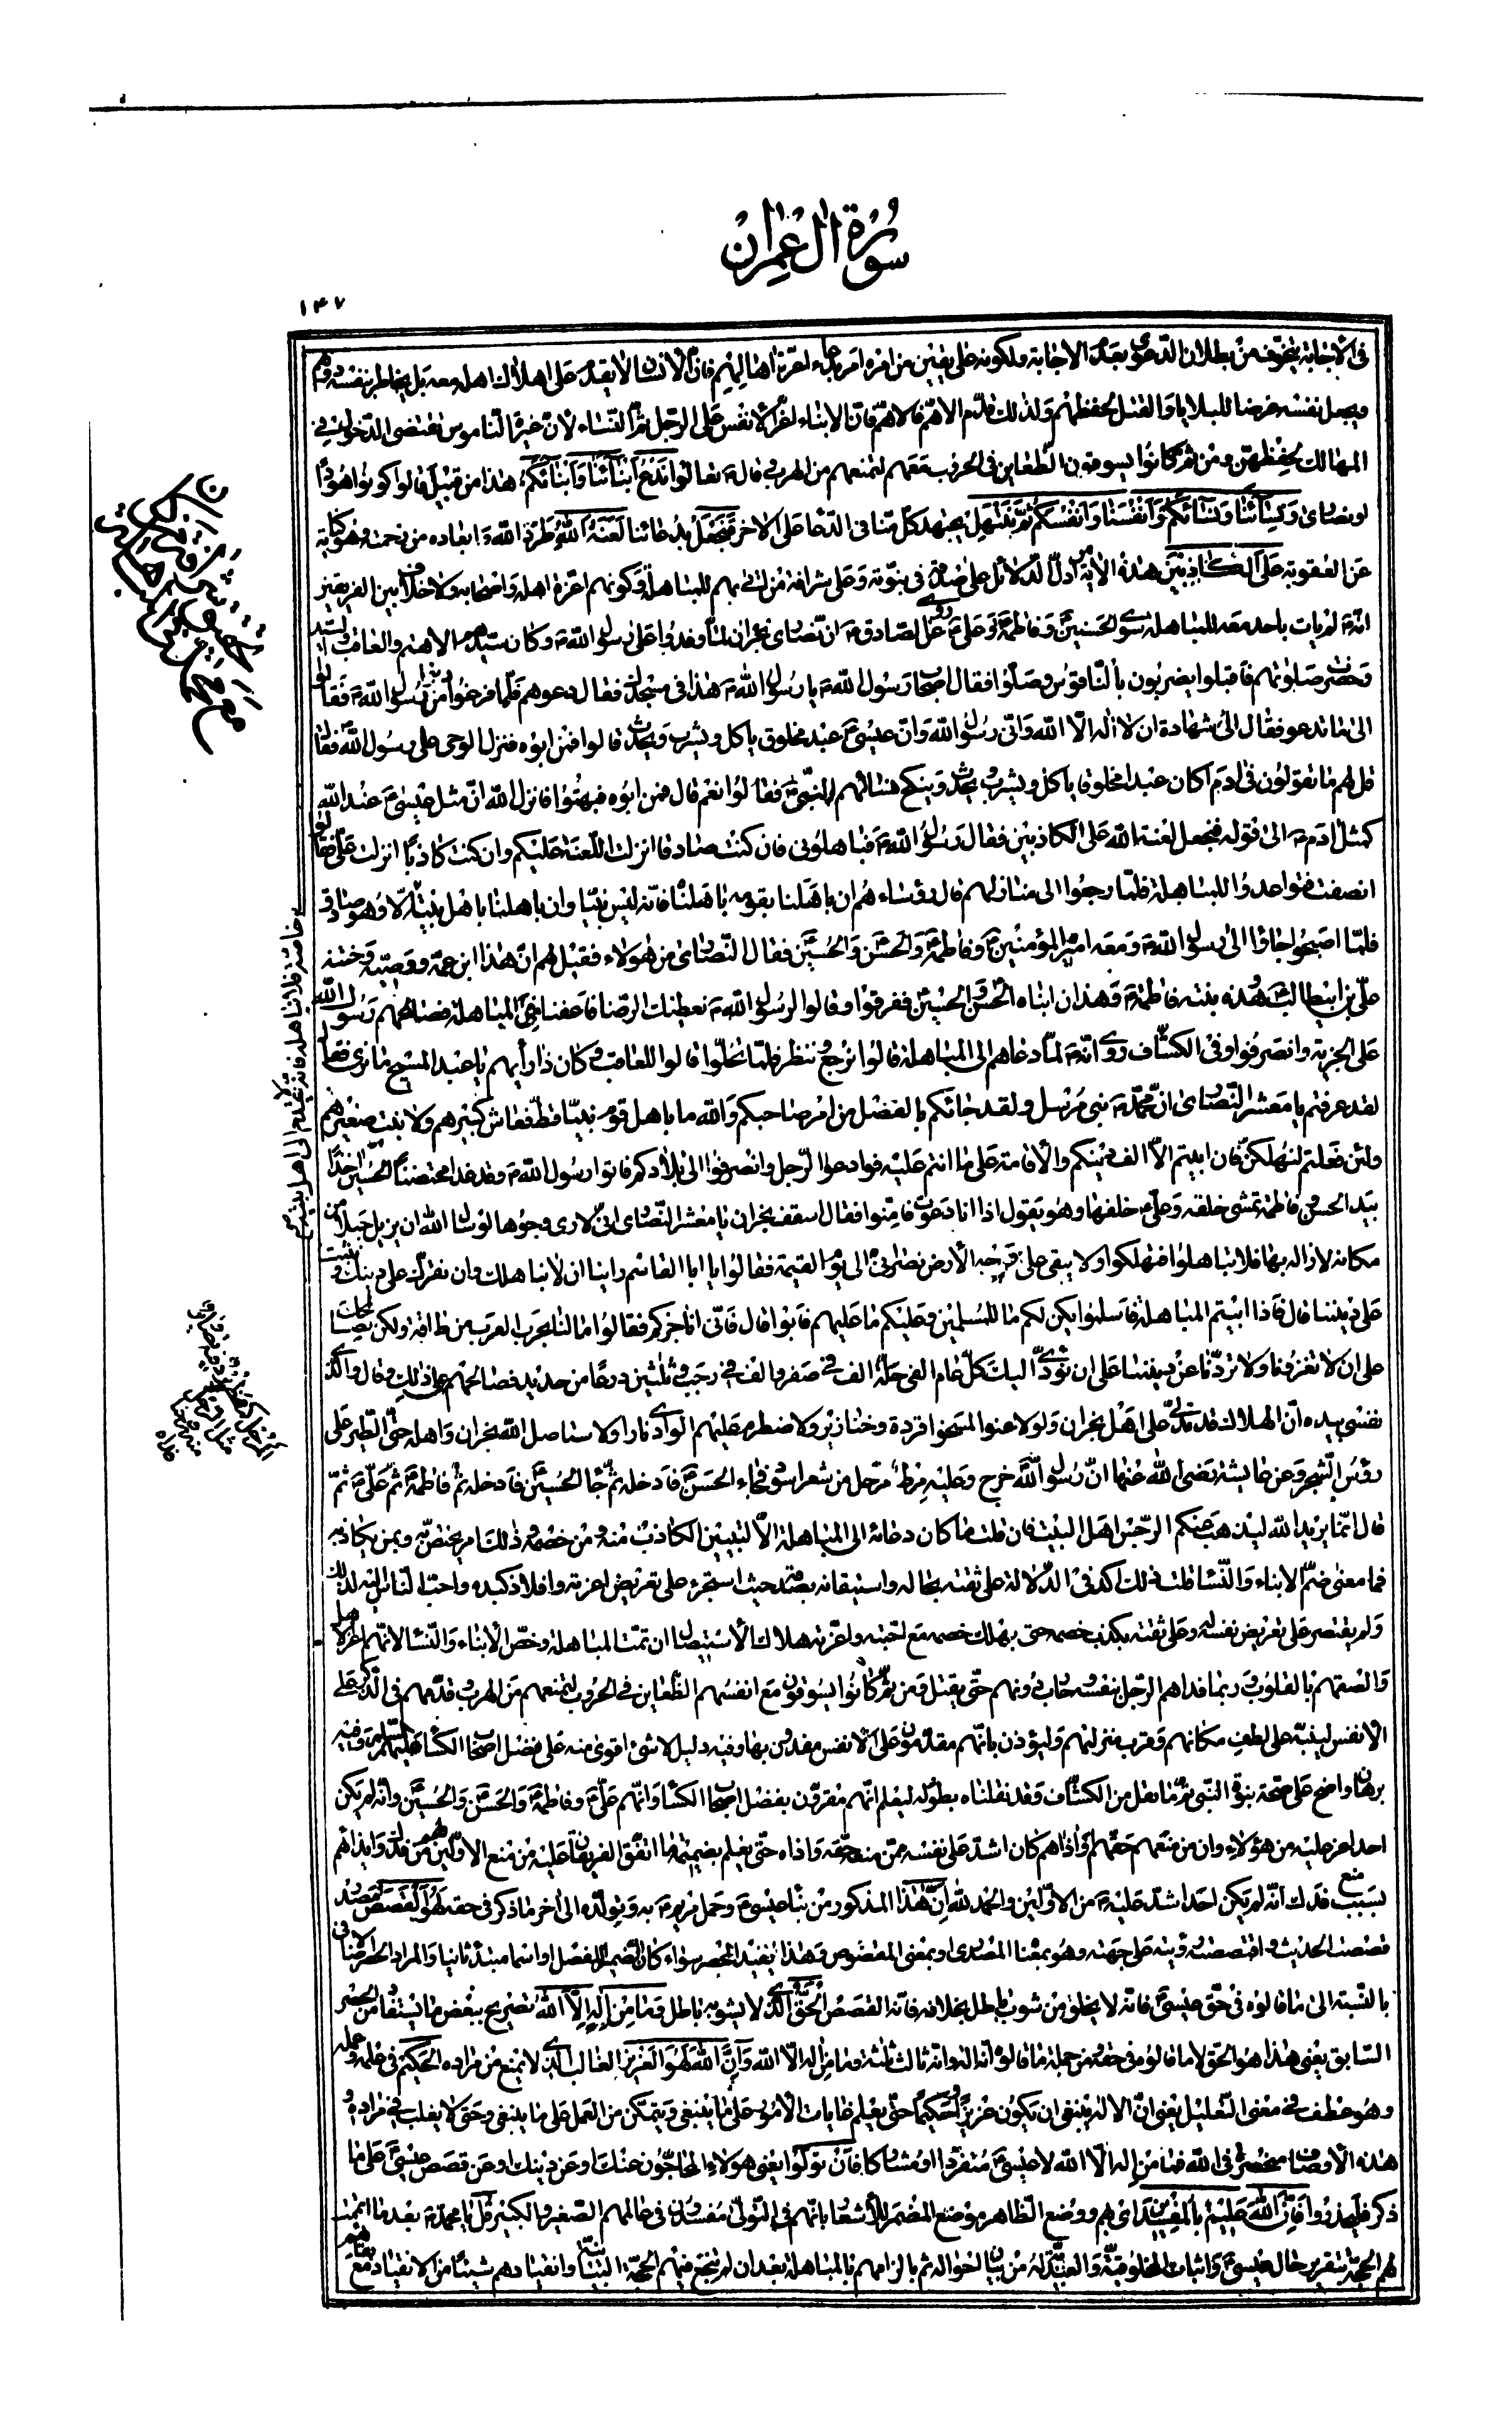 سورة آل عمران
١٤٧
فى الاجابة بتخوّفه من بطلان الدّعوى بعد الاجابة ولكونه على يقين من امره امر بدعاء اعزّة اهاليهم فانّ الانسان لا يقدم على اهلاك اهله معه بل يخاطر بنفسه دونهم
ويجعل نفسه عرضا للبلايا والقتل لحفظهم ولذلك قدّم الاهمّ فالاهمّ فانّ الابناء اعزّ الانفس على الرّجل ثمّ النّساء لانّ غيرة النّاموس تقتضى الدّخول فى
المهالك لحفظهنّ ومن ثمّ كانوا يسوقون الظّعاين فى الحروب معهم لتمنعهم من الهرب وقال تعالوا ندع ابنائنا وابنائكم هذا من قبيل قالوا كونوا هودًا
او نصارى ونسائنا ونسائكم وانفسنا وانفسكم ثمّ نبتهل يجتهد كلّ منّا فى الدّعا على الاخر فنجعل بدعائنا لعنة الله طرد الله وابعاده من رحمته وهو كناية
عن العقوبة على الكاذبين هذه الاية من ادلّ الدّلائل على صدقه فى نبوّته وعلى شرافة من اتى بهم للمباهلة وكونهم اعزّة اهله واصحابه ولا خلاف بين الفريقين
انّه لم يات باحد معه للمباهلة سوى الحسنين وفاطمة وعلىّ روى عن الصّادق انّ نصارى نجران لمّا وفدوا على رسول الله وكان سيّدهم الاهتم والعاقب والسّيّد
وحضرت صلوتهم فاقبلوا يضربون بالنّاقوس وصلّوا فقال اصحاب رسول الله يا رسول الله هذا فى مسجدك فقال دعوهم فلمّا فرغوا دنوا من رسول الله فقالوا
الى ما تدعو فقال الى شهادة ان لا اله الّا الله وانّى رسول الله وانّ عيسى عبد مخلوق ياكل ويشرب ويحدث قالوا فمن ابوه فنزل الوحى على رسول الله فقال
قل لهم ما تقولون فى ادم اكان عبدا مخلوقا ياكل ويشرب ويحدث وينكح فسئالهم النّبىّ فقالوا نعم قال فمن ابوه فبهتوا فانزل الله انّ مثل عيسى عند الله
كمثل ادم الى قوله فنجعل لعنة الله على الكاذبين فقال رسول الله فباهلونى فان كنت صادقا انزلت اللّعنة عليكم وان كنت كاذبًا انزلت علىّ فقالوا
انصفت فتواعدوا للمباهلة فلمّا رجعوا الى منازلهم قال رؤساءهم ان باهلنا بقومه باهلنا فانّه ليس نبيّا وان باهلنا باهل بيته فلا وهو صادق
فلمّا اصبحوا جاؤا الى رسول الله ومعه امير المؤمنين وفاطمة والحسن والحسين فقال النّصارى من هؤلاء فقيل لهم انّ هذا ابن عمّه ووصيّه وختنه
علىّ بن ابيطالب وهذه بنته فاطمة وهذان ابناه الحسن والحسين ففرقوا وقالوا لرسول الله نعطيك الرّضا فاعفنا من المباهلة فصالحهم رسول الله
على الجزية وانصرفوا وفى الكشّاف روى انّه لمّا دعاهم الى المباهلة قالوا نرجع وننظر فلمّا تخلّوا قالوا للعاقب وكان ذا رأيهم يا عبد المسيح ما ترى فقال
لقد عرفتم يا معشر النّصارى انّ محمّدا نبىّ مرسل ولقد جائكم بالفضل من امر صاحبكم والله ما باهل قوم نبيّا قطّ فعاش كبيرهم ولا نبت صغيرهم
ولئن فعلتم لتهلكنّ فان ابيتم الّا الف دينكم والاقامة على ما انتم عليه فوادعوا الرّجل وانصرفوا الى بلادكم فاتوا رسول الله وقد غدا محتضنًا الحسين اخذًا
بيد الحسن وفاطمة تمشى خلفه وعلىّ خلفها وهو يقول اذا انا دعوت فامّنوا فقال اسقف نجران يا معشر النّصارى انّى لارى وجوها لو شاء الله ان يزيل جبلا من
مكانه لازاله بها فلا تباهلوا فتهلكوا ولا يبقى على وجه الارض نصرانىّ الى يوم القيمة فقالوا يا ابا القاسم راينا ان لا نباهلك وان نقرّك على دينك ونثبت
على ديننا قال فاذا ابيتم المباهلة فاسلموا يكن لكم ما للمسلمين وعليكم ما عليهم فابوا قال فانّى اناجزكم فقالوا ما لنا بحرب العرب من طاقة ولكن نصالحك
على ان لا تغزونا ولا تردّنا عن ديننا على ان نؤدّى اليك كلّ عام الفى حلّة الف فى صفر والف فى رجب وثلثين درعًا من حديد فصالحهم على ذلك وقال والّذى
نفسى بيده انّ الهلاك قد تدلّى على اهل نجران ولو لاعنوا لمسخوا قردة وخنازير ولاضطرم عليهم الوادى نارا ولاستاصل الله نجران واهله حتّى الطّير على
رؤس الشّجر وعن عايشة رضى الله عنها انّ رسول الله خرج وعليه مرط مرحّل من شعر اسود فجاء الحسن فادخله ثمّ جاء الحسين فادخله ثمّ فاطمة ثمّ علىّ ثمّ
قال انّما يريد الله ليذهب عنكم الرّجس اهل البيت فان قلت ما كان دعائه الى المباهلة الّا لتبيين الكاذب منه ومن خصمه وذلك امر يختصّ به وبمن يكاذبه
فما معنى ضمّ الابناء والنّساء قلت ذلك اكد فى الدّلالة على ثقته بحاله واستيقانه بصدقه حيث استجرء على تعريض اعزّته وافلاذ كبده واحبّ النّاس اليه لذلك
ولم يقتصر على تعريض نفسه له وعلى ثقته بكذب خصمه حتى يهلك خصمه مع احبّته واعزّته هلاك الاستيصال ان تمّت المباهلة وخصّ الابناء والنّساء لانّهم اعزّ الاهل
والصقهم بالقلوب وربما فداهم الرّجل بنفسه وحارب دونهم حتّى يقتل ومن ثمّ كانوا يسوقون مع انفسهم الظّعاين فى الحروب لتمنعهم من الهرب وقدّمهم فى الذّكر على
الانفس لينبّه على لطف مكانهم وقرب منزلتهم وليؤذن بانّهم مقدّمون على الانفس مفدون بها وفيه دليل لا شىء اقوى منه على فضل اصحاب الكساء عليهم السّلام وفيه
برهان واضح على صحّة نبوّة النّبىّ تمّ ما نقل من الكشّاف وقد نقلناه بطوله ليعلم انّهم مقرّون بفضل اصحاب الكساء وانّهم علىّ وفاطمة والحسن والحسين وانّه لم يكن
احد اعزّ عليه من هؤلاء وان من منعهم حقّهم واذاهم كان اشدّ على نفسه ممّن منعه حقّه واذاه حتّى يعلم بضميمة ما اتّفق الفريقان عليه من منع الاوّلين فدك وايذائهم
بسبب منع فدك انّه لم يكن احد اشدّ عليه من الاوّلين والحمد لله انّ هذا المذكور من نبأ عيسى وحمل مريم به وتولّده الى اخر ما ذكر فى حقّه لهو القصص مصدر
قصصت الحديث واقتصصته رويته على جهته وهو بمعنا المصدرى او بمعنى المقصوص وهذا يفيد الحصر سواء كان الضّمير للفصل او اسما مبتدأ ثانيا والمراد الحصر الاضافى
بالنّسبة الى ما قالوه فى حقّ عيسى فانّه لا يخلو من شوب باطل بخلافه فانّه القصص الحقّ الّذى لا يشوبه باطل وما من اله الّا الله تصريح ببعض ما يستفاد من الحصر
السّابق يعنى هذا هو الحقّ لا ما قالوه فى حقّه من جملة ما قالوه انّه اله وانّه ثالث ثلثة وما من اله الّا الله وانّ الله لهو العزيز الغالب الّذى لا يمنع من مراده الحكيم فى علمه وعمله
وهو عطف فى معنى التّعليل يعنى انّ الاله ينبغى ان يكون عزيزا وحكيما حتّى يعلم غايات الامور على ما ينبغى ويتمكّن من العمل على ما ينبغى وحتّى لا يغلب فى مراده و
هذه الاوصاف منحصرة فى الله فما من اله الّا الله لا عيسى منفردا او مشاركا فان تولّوا يعنى هؤلاء المحاجّون عنك او عن دينك او عن قصص عيسى على ما
ذكر فليحذروا فانّ الله عليم بالمفسدين اى بهم ووضع الظّاهر موضع المضمر للاشعار بانّهم فى التّولّى مفسدون فى عالمهم الصّغير والكبير قل يا محمّد بعد ما اتممت
لهم الحجّة بتقرير حال عيسى واثبات المخلوقيّة والعبديّة له من بيان احواله ثم بالزامهم بالمباهلة بعد ان لم ينجع فيهم الحجّة البيّنة وانقيادهم شيئًا من الانقياد معهم
خاصّة فلا نباهله فانّه لا يقدم الى اهل بيته